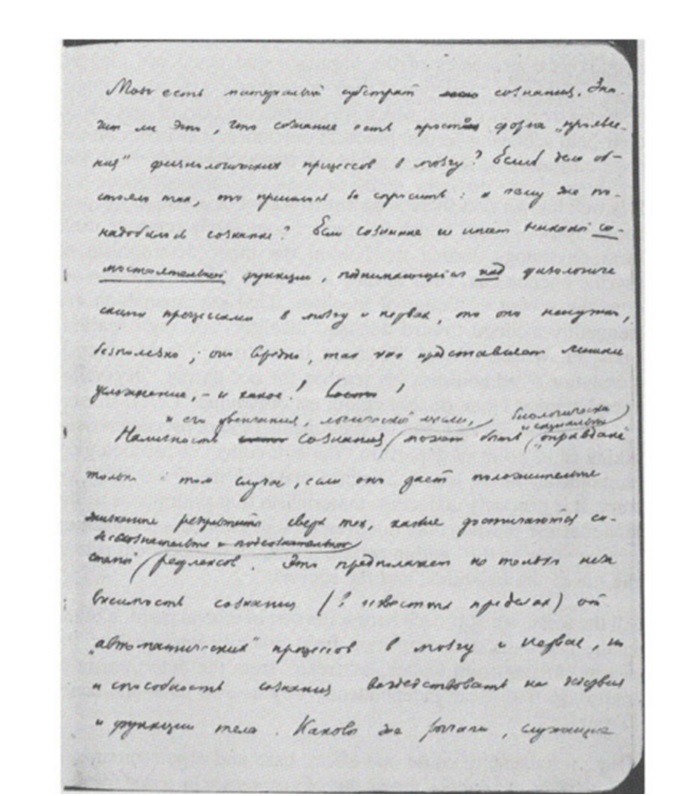 Мозг есть материальный субстрат сознания. Зна-
чит ли это, что сознание есть простая форма „проявле-
ния" физиологических процессов в мозгу? Если б дело об-
стояло так, то пришлось бы спросить: к чему же по-
надобилось сознание? Если сознание не имеет никакой са-
мостоятельной функции, поднимающейся над физиологиче
скими процессами в мозгу и нервах, то оно ненужно,
бесполезно; оно вредно, так как представляет лишнее
усложнение, – и какое!
и его увенчания, логической мысли, биологически и социально
Наличность сознания может быть „оправдана"
только в том случае, если оно дает положительные
жизненные результаты сверх тех, какие достигаются со-
бессознательных и подсознательных
рефлексов. Это предполагает не только неза
висимость сознания (в известных пределах) от
„автоматических" процессов в мозгу и нервах, но
и способность сознания воздействовать на действия
и функции тела. Каковы же рычаги, служащие